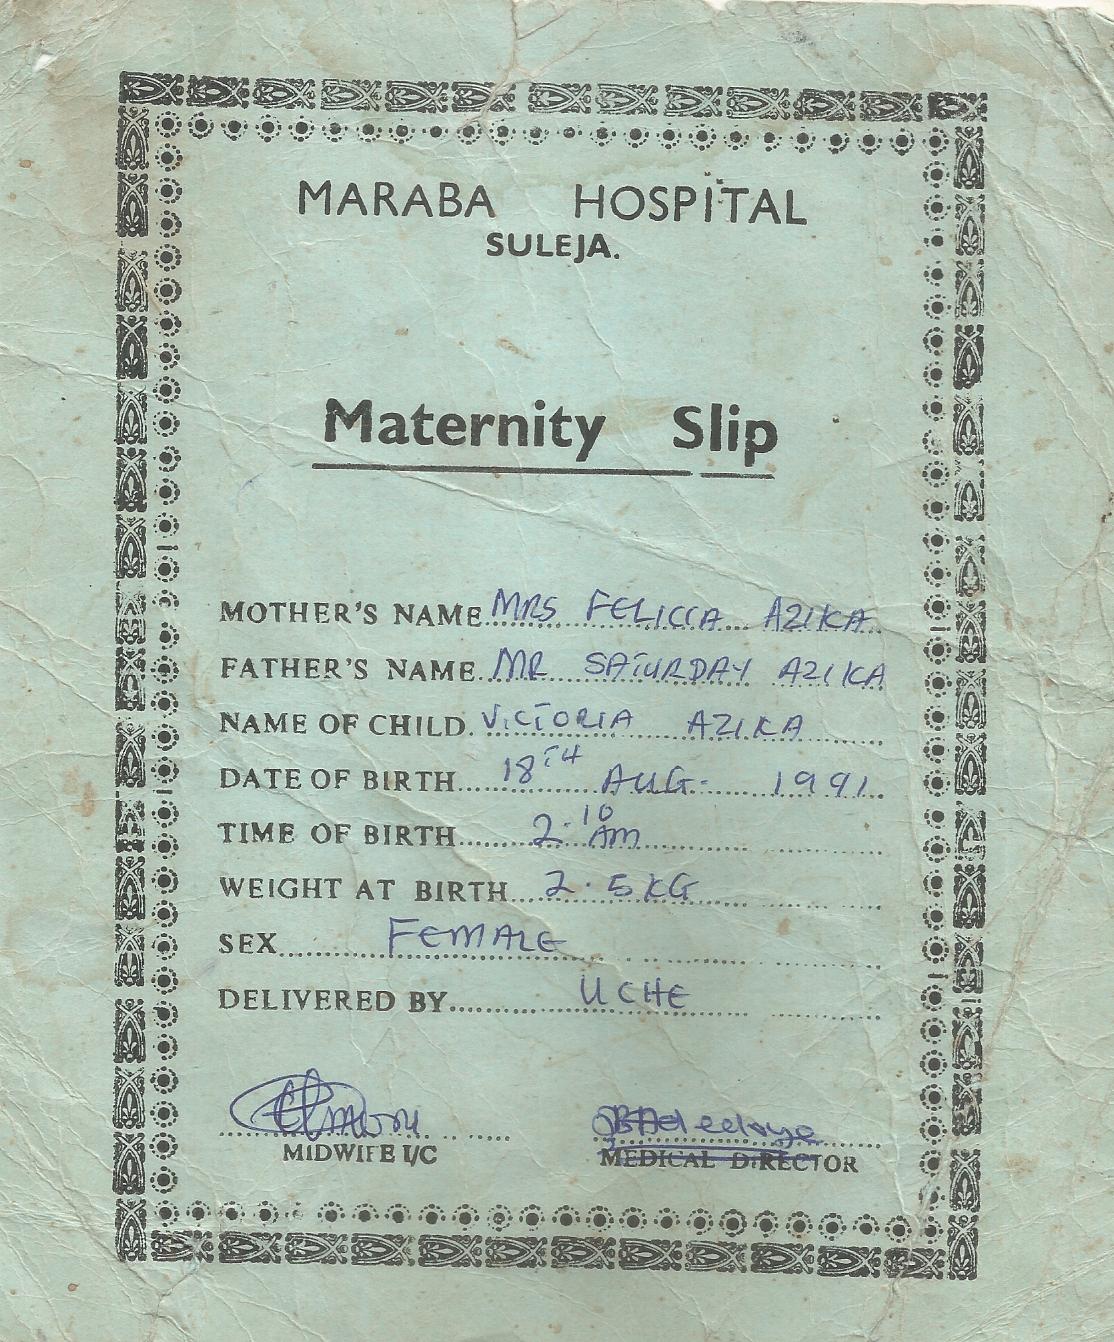 MARABA HOSPITAL
SULEJA.
Maternity Slip
MOTHER'S NAME MRS FELICIA AZIKA
FATHER'S NAME MR SATURDAY AZIKA
NAME OF CHILD VICTORIA AZIKA
DATE OF BIRTH 18TH AUG- 1991
TIME OF BIRTH 2.10 AM
WEIGHT AT BIRTH 2.5KG
SEX FEMALE
DELIVERED BY UCHE
MIDWIFE I/C MEDICAL DIRECTOR